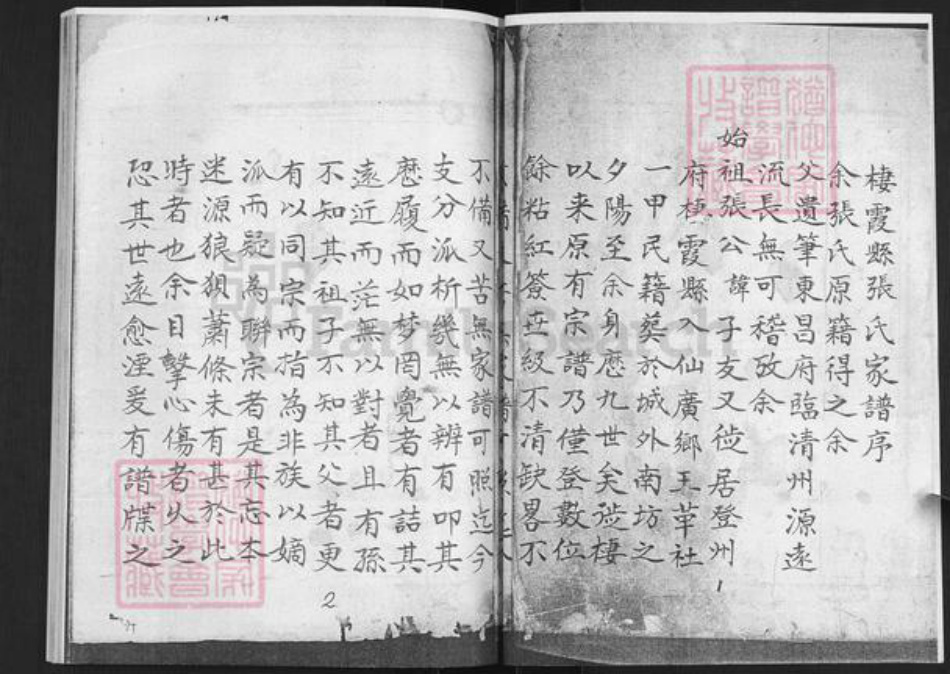 棲霞縣張氏家譜序
余張氏原籍得之余
父遺筆東昌府臨清州源遠
流長無可稽攷余
始祖張公諱子友又徙居登州
府棲霞縣入仙廣鄉玉華社
一甲民籍葬於城外南坊之
夕陽至余身歷九世矣徙棲
以来原有宗譜乃僅登數位
餘粘紅簽世級不清缺畧不
1
不備又苦無家譜可照迄今
支分派析幾無以辨有叩其
歷履而如梦罔覺者有詰其
遠近而茫無以對者且有孫
不知其祖子不知其父者更
有以同宗而指為非族以嫡
派而疑為聯宗者是其忘本
迷源狼狽蕭條未有甚於此
時者也余目擊心傷者火之
恐其世遠愈湮爰有譜牒之
2
FamilySearch